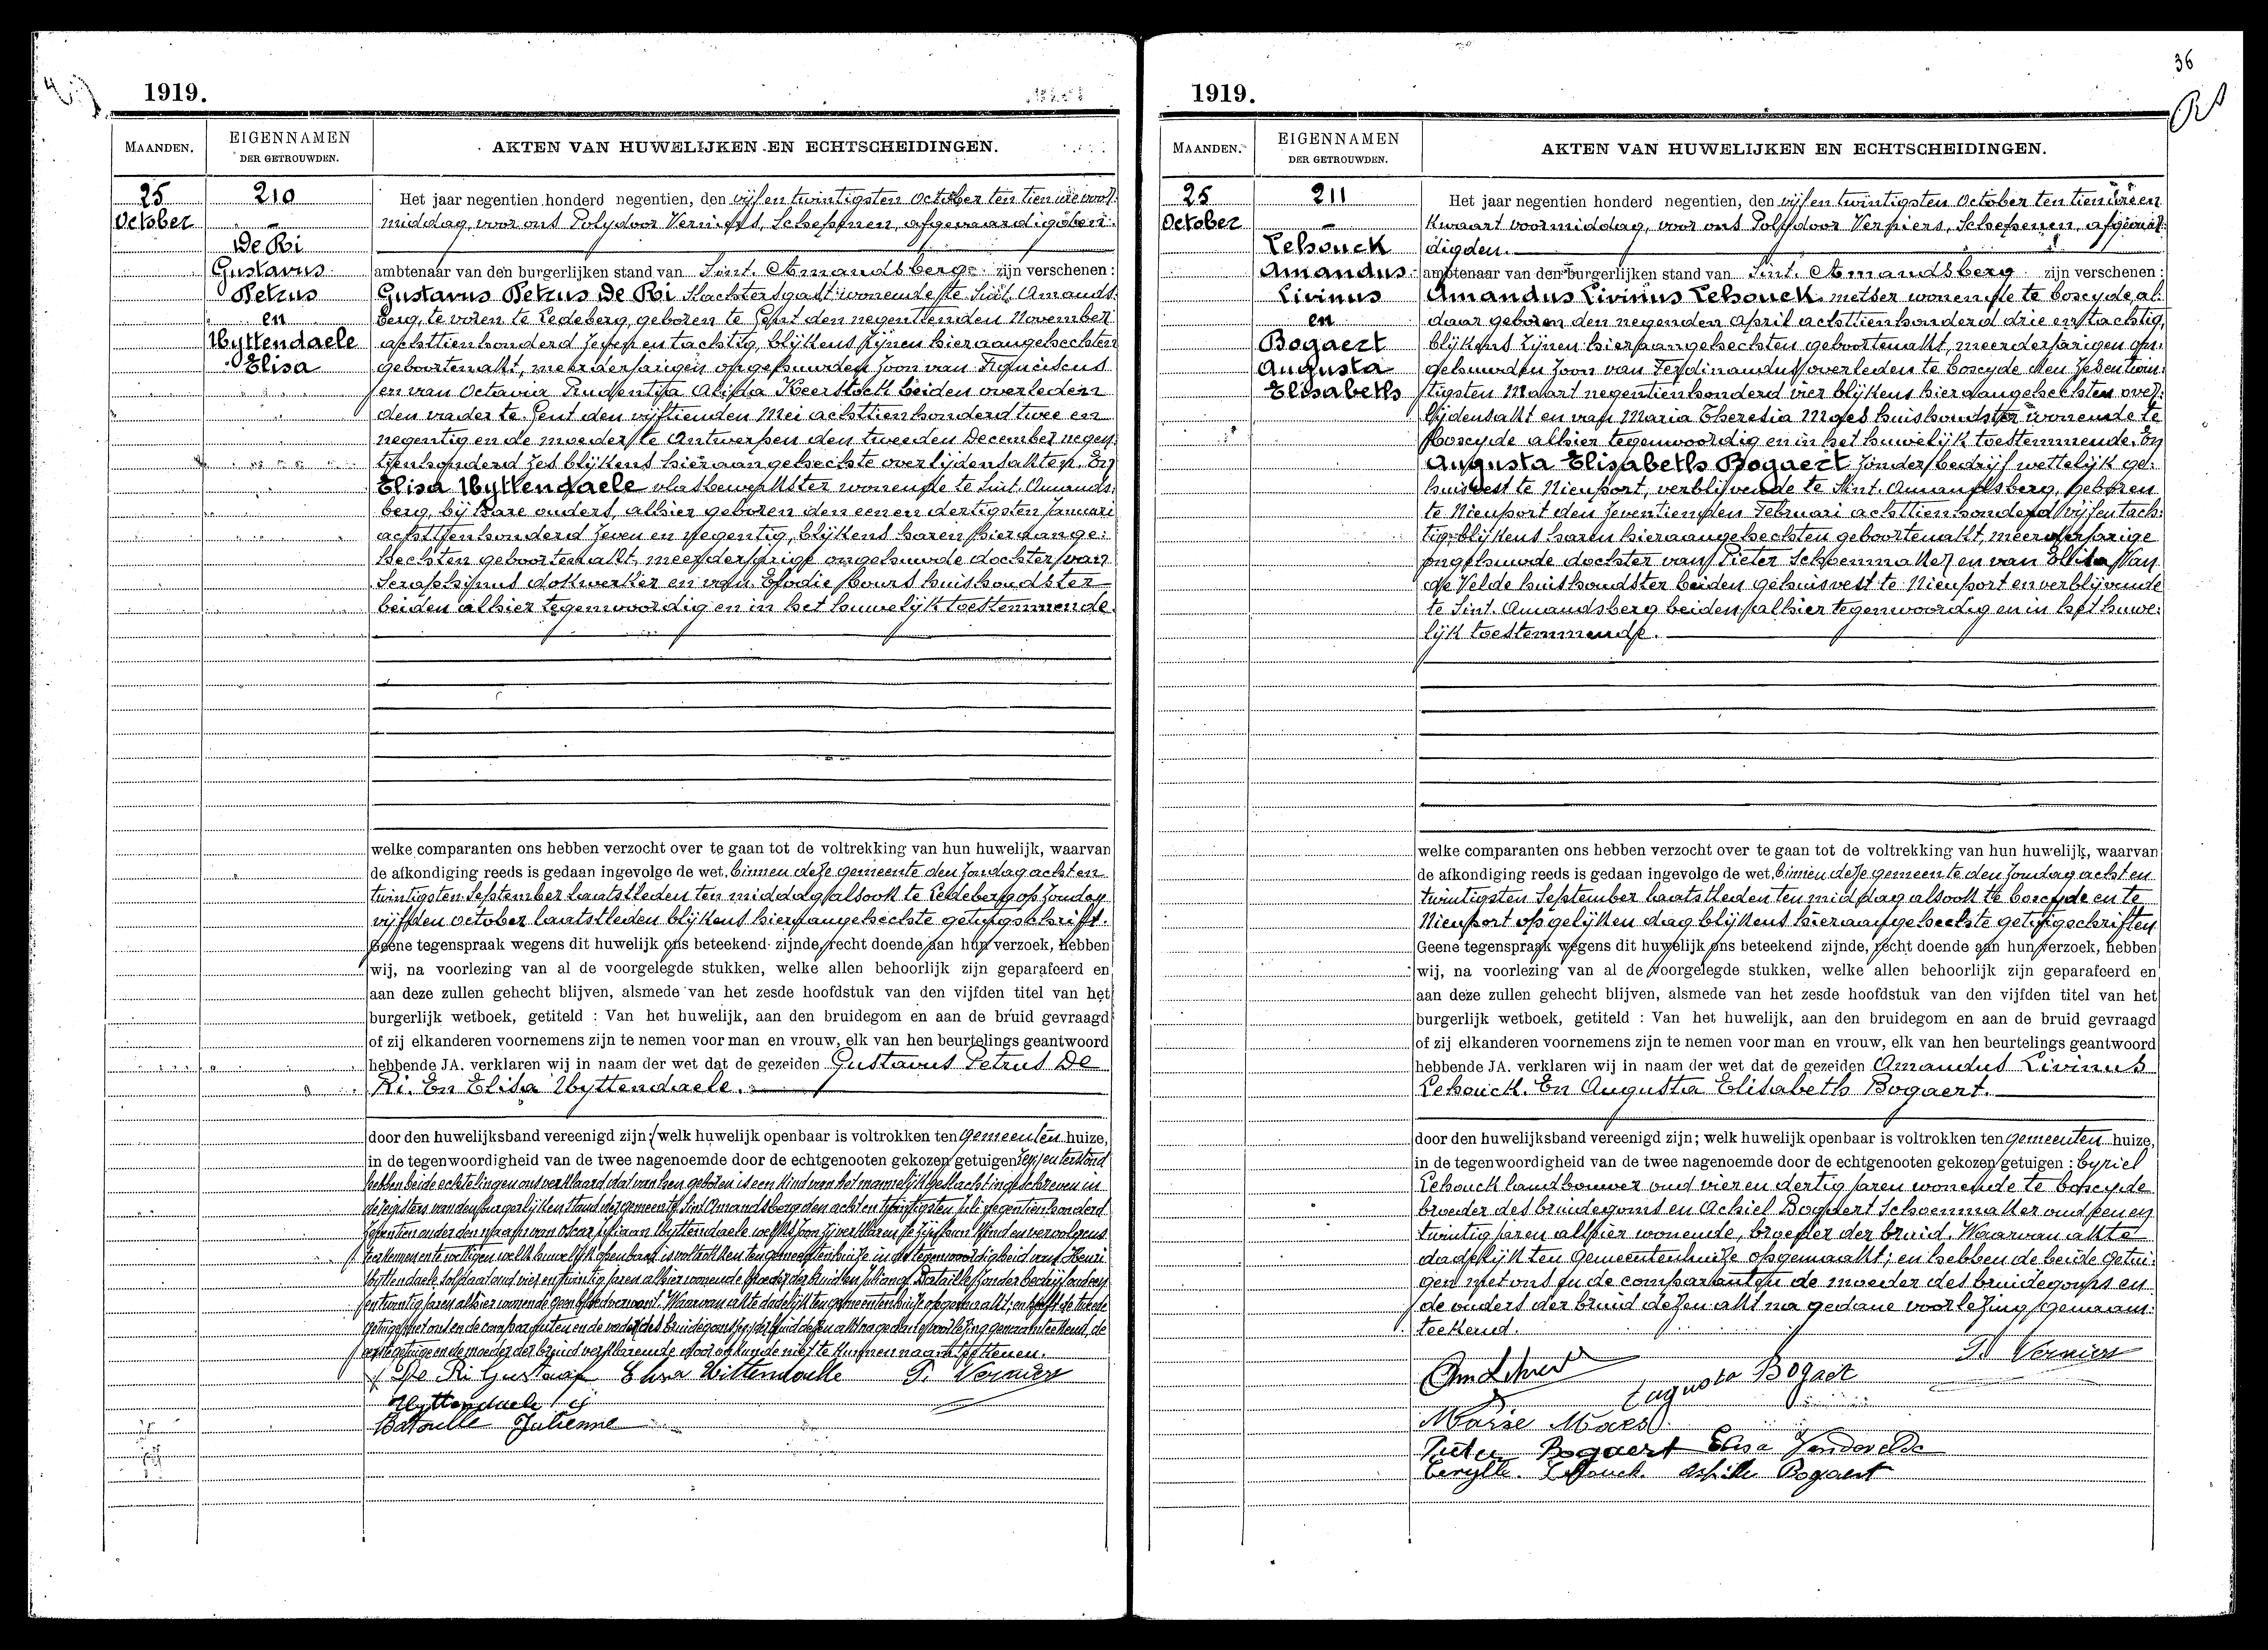 1919.
MAANDEN.
EIGENNAMEN
DER GETROUWDEN.
AKTEN VAN HUWELIJKEN EN ECHTSCHEIDINGEN.
25
October
210
De Ri
Gustavus
Petrus
en
Uyttendaele
Elisa
Het jaar negentien honderd negentien, den vijf en twintigsten October ten tien ure voor-
middag, voor ons Polydoor Verniers, Schepenen, afgevaardigden
ambtenaar van den burgerlijken stand van Sint. Amandsberg zijn verschenen:
Gustavus Petrus De Ri Slachtersgast wonende te Sint. Amands-
berg, te voren te Ledeberg, geboren te Gent den negentienden November
achttienhonderd zeven en tachtig, blijkens zijnen hieraangehechten
geboortenakt, meerderjarigen ongehuwden zoon van Franciscus
en van Octavia Prudentia Keerstock beiden overleden
den vader te Gent den vijftienden Mei achttienhonderd twee en
negentig en de moeder te Antwerpen den tweeden December negen-
tienhonderd zes blijkens hieraangehechte overlijdensakten. En
Elisa Uyttendaele vlasbewerkster wonende te Sint. Amands-
berg, bij hare ouders, alhier geboren den eenen dertigsten Januari
achttienhonderd zeven en negentig, blijkens haren hieraange:
hechten geboortenakt, meerderjarige ongehuwde dochter van
Seraphinus dokwerker en van Elodie huishoudster
beiden alhier tegenwoordig en in het huwelijk toestemmende.
welke comparanten ons hebben verzocht over te gaan tot de voltrekking van hun huwelijk, waarvan
de afkondiging reeds is gedaan ingevolge de wet, binnen deze gemeente den zondag acht en
twintigsten September laatstleden ten middag alsook te Ledeberg op zondag
vijfden october laatstleden blijkens hieraangehechte getuigschrift.
Geene tegenspraak wegens dit huwelijk ons beteekend zijnde, recht doende aan hun verzoek, hebben
wij, na voorlezing van al de voorgelegde stukken, welke allen behoorlijk zijn geparafeerd en
aan deze zullen gehecht blijven, alsmede van het zesde hoofdstuk van den vijfden titel van het
burgerlijk wetboek, getiteld : Van het huwelijk, aan den bruidegom en aan de bruid gevraagd
of zij elkanderen voornemens zijn te nemen voor man en vrouw, elk van hen beurtelings geantwoord
hebbende JA. verklaren wij in naam der wet dat de gezeiden Gustavus Petrus De
Ri. En Elisa Uyttendaele.
door den huwelijksband vereenigd zijn; welk huwelijk openbaar is voltrokken ten gemeenten huize,
in de tegenwoordigheid van de twee nagenoemde door de echtgenooten gekozen getuigen
hebben beide echtelingen ons verklaard dat van hen geboren is een kind van het mannelijk geslacht ingeschreven in
de registers van den burgerlijken stand der gemeente Sint Amandsberg den acht en twintigsten juli negentienhonderd
onder den naam van Oscar Uyttendaele
welk huwelijk openbaar is voltrokken ten gemeentenhuize in de tegenwoordigheid van Henri
Uyttendaele soldaat oud vier en twintig jaren alhier wonende broeder der bruid en Juliana Bataille zonder bedrijf oud
en twintig jaren alhier wonende geen bloedverwant. Waarvan akte dadelijk ten gemeentenhuize opgemaakt; en heeft de tweede
getuige met ons en de comparanten en de vader der bruid dezen akt na gedane voorlezing genaamteekend, de
eerste getuige en de moeder der bruid verklarende niet te kunnen naamteekenen.
De Ri Gustaaf Elisa Uittendaele P. Verniers
Uyttendaele
Bataille Julienne
36
1919.
MAANDEN.
EIGENNAMEN
DER GETROUWDEN.
AKTEN VAN HUWELIJKEN EN ECHTSCHEIDINGEN.
25
October
211
Lehouck
Amandus
Livinus
en
Bogaert
Augusta
Elisabeth
Het jaar negentien honderd negentien, den vijf en twintigsten October ten tien ure en
kwaart voormiddag, voor ons Polydoor Verniers, Schepenen, afgevaar-
digden.
ambtenaar van den burgerlijken stand van Sint. Amandsberg zijn verschenen:
Amandus Livinus Lehouck metser wonende te Coxcyde al-
daar geboren den negenden April achttienhonderd drie en tachtig,
blijkens zijnen hieraangehechten geboortenakt, meerderjarigen on-
gehuwden zoon van Ferdinandus overleden te Coxcyde den zes en twin-
tigsten Maart negentienhonderd vier blijkens hieraangehechten over-
lijdensakt en van Maria Theresia Maes huishoudster wonende te
Coxcyde alhier tegenwoordig en in het huwelijk toestemmende. En
Augusta Elisabeth Bogaert zonder bedrijf wettelijk ge-
huisvest te Nieuport, verblijvende te Sint. Amandsberg, geboren
te Nieuport den zeventienden Februari achttienhonderd vijf en tach-
tig blijkens haren hieraangehechten geboortenakt, meerderjarige
ongehuwde dochter van Pieter Schoenmaker en van Elisa Van
de Velde huishoudster beiden gehuisvest te Nieuport en verblijvende
te Sint. Amandsberg beiden alhier tegenwoordig en in het huwe-
lijk toestemmende.
welke comparanten ons hebben verzocht over te gaan tot de voltrekking van hun huwelijk, waarvan
de afkondiging reeds is gedaan ingevolge de wet, binnen deze gemeente den zondag acht en
twintigsten September laatstleden ten middag alsook te Coxcyde en te
Nieuport op gelijken dag blijkens hieraangehechte getuigschriften
Geene tegenspraak wegens dit huwelijk ons beteekend zijnde, recht doende aan hun verzoek, hebben
wij, na voorlezing van al de voorgelegde stukken, welke allen behoorlijk zijn geparafeerd en
aan deze zullen gehecht blijven, alsmede van het zesde hoofdstuk van den vijfden titel van het
burgerlijk wetboek, getiteld : Van het huwelijk, aan den bruidegom en aan de bruid gevraagd
of zij elkanderen voornemens zijn te nemen voor man en vrouw, elk van hen beurtelings geantwoord
hebbende JA. verklaren wij in naam der wet dat de gezeiden Amandus Livinus
Lehouck. En Augusta Elisabeth Bogaert.
door den huwelijksband vereenigd zijn; welk huwelijk openbaar is voltrokken ten gemeenten huize,
in de tegenwoordigheid van de twee nagenoemde door de echtgenooten gekozen getuigen : Cyriel
Lehouck landbouwer oud vier en dertig jaren wonende te Coxcyde
broeder des bruidegoms en Achiel Bogaert Schoenmaker oud een en
twintig jaren alhier wonende, broeder der bruid. Waarvan akte
dadelijk ten Gemeentenhuize opgemaakt; en hebben de beide getui-
gen met ons en de comparanten de moeder des bruidegoms en
de ouders der bruid dezen akt na gedane voorlezing genaam-
teekend.
P. Verniers
Augusta Bogaer
Marie Maes
Pieter Bogaert Elisa Vandevelde
Cerylle Lehouck Achille Bogaert